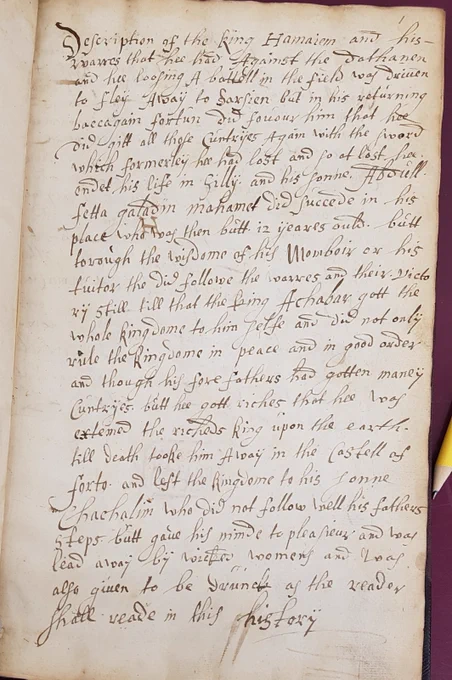 Description of the King Hamaiem and his
warres that hee had Against the Dathanen
and hee loosing A battell in the field was driuen
to fley Away to Parsien but in his returning
baccagain fortun did fouour him that hee
did gitt all those Cuntryes Again with the sword
which formerley hee had lost and so at last hee
endet his life in Gilly. and his sonne. Abdull
fetta galadin mahamet did succede in his
place who was then bůtt 12 yeares ould. bůtt
torough the wisdome of his Momboir or his
tuitor the did followe the warres and their Victo
ry still till that the king Achabar gott the
whole kingdome to him selfe and did not only
rule the kingdome in peace and in good order
and though his fore fathers had gotten maney
Cuntryes bůtt hee gott riches that hee was
extemed the richeds king upon the earth.
till death tooke him Away in the Castell of
forto. and left the kingdome to his sonne
Chachalim who did not follow well his fathers
steps bůtt gaue his minde to pleasiur. and was
lead away by wicked womens and was
also giuen to be drunck as the reader
shall reade in this history